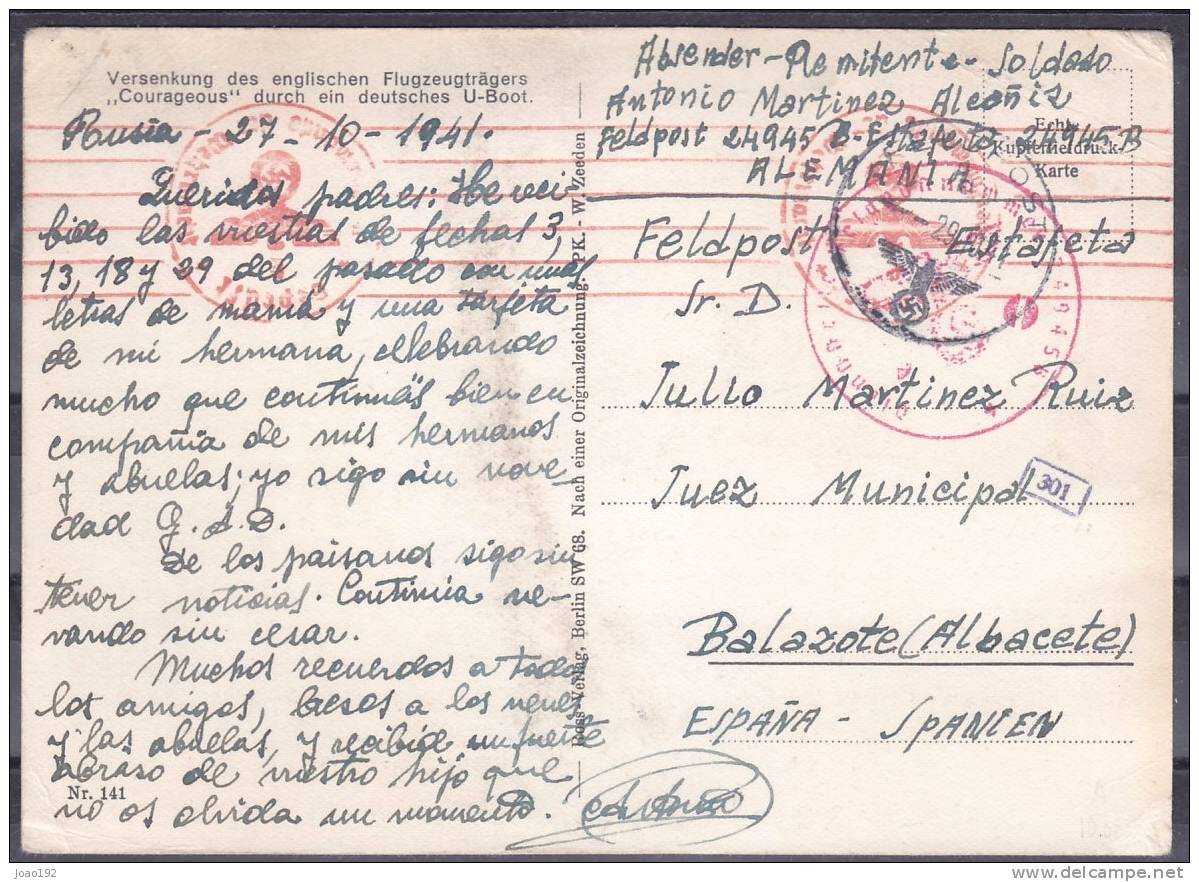 Versenkung des englischen Flugzeugträgers
„Courageous" durch ein deutsches U-Boot.
Rusia - 27 - 10 - 1941.
Queridos padres: He reci-
bido las vuestras de fechas 3,
13, 18 y 29 del pasado con unas
letras de mamá y una tarjeta
de mi hermana, celebrando
mucho que continuéis bien en
compañia de mis hermanos
y abuelas; yo sigo sin nove-
dad G. a. D.
De los paisanos sigo sin
tener noticias. Continúa ne-
vando sin cesar.
Muchos recuerdos a todos
los amigos, besos a los nenes
y las abuelas, y recibid un fuerte
abrazo de vuestro hijo que
no os olvida un momento.
Antonio
Nr. 141
Ross-Verlag, Berlin SW 68. Nach einer Originalzeichnung. PK. - W. Zeeden
Absender - Remitente - Soldado
Antonio Martinez Alcañiz
Feldpost 24945 B - Estafeta 24945 B
ALEMANIA
Echte
Kupfertiefdruck-
Karte
Feldpost Estafeta
Sr. D.
Julio Martinez Ruiz
Juez Municipal
301
Balazote (Albacete)
ESPAÑA - SPANIEN
joao192
www.delcampe.net